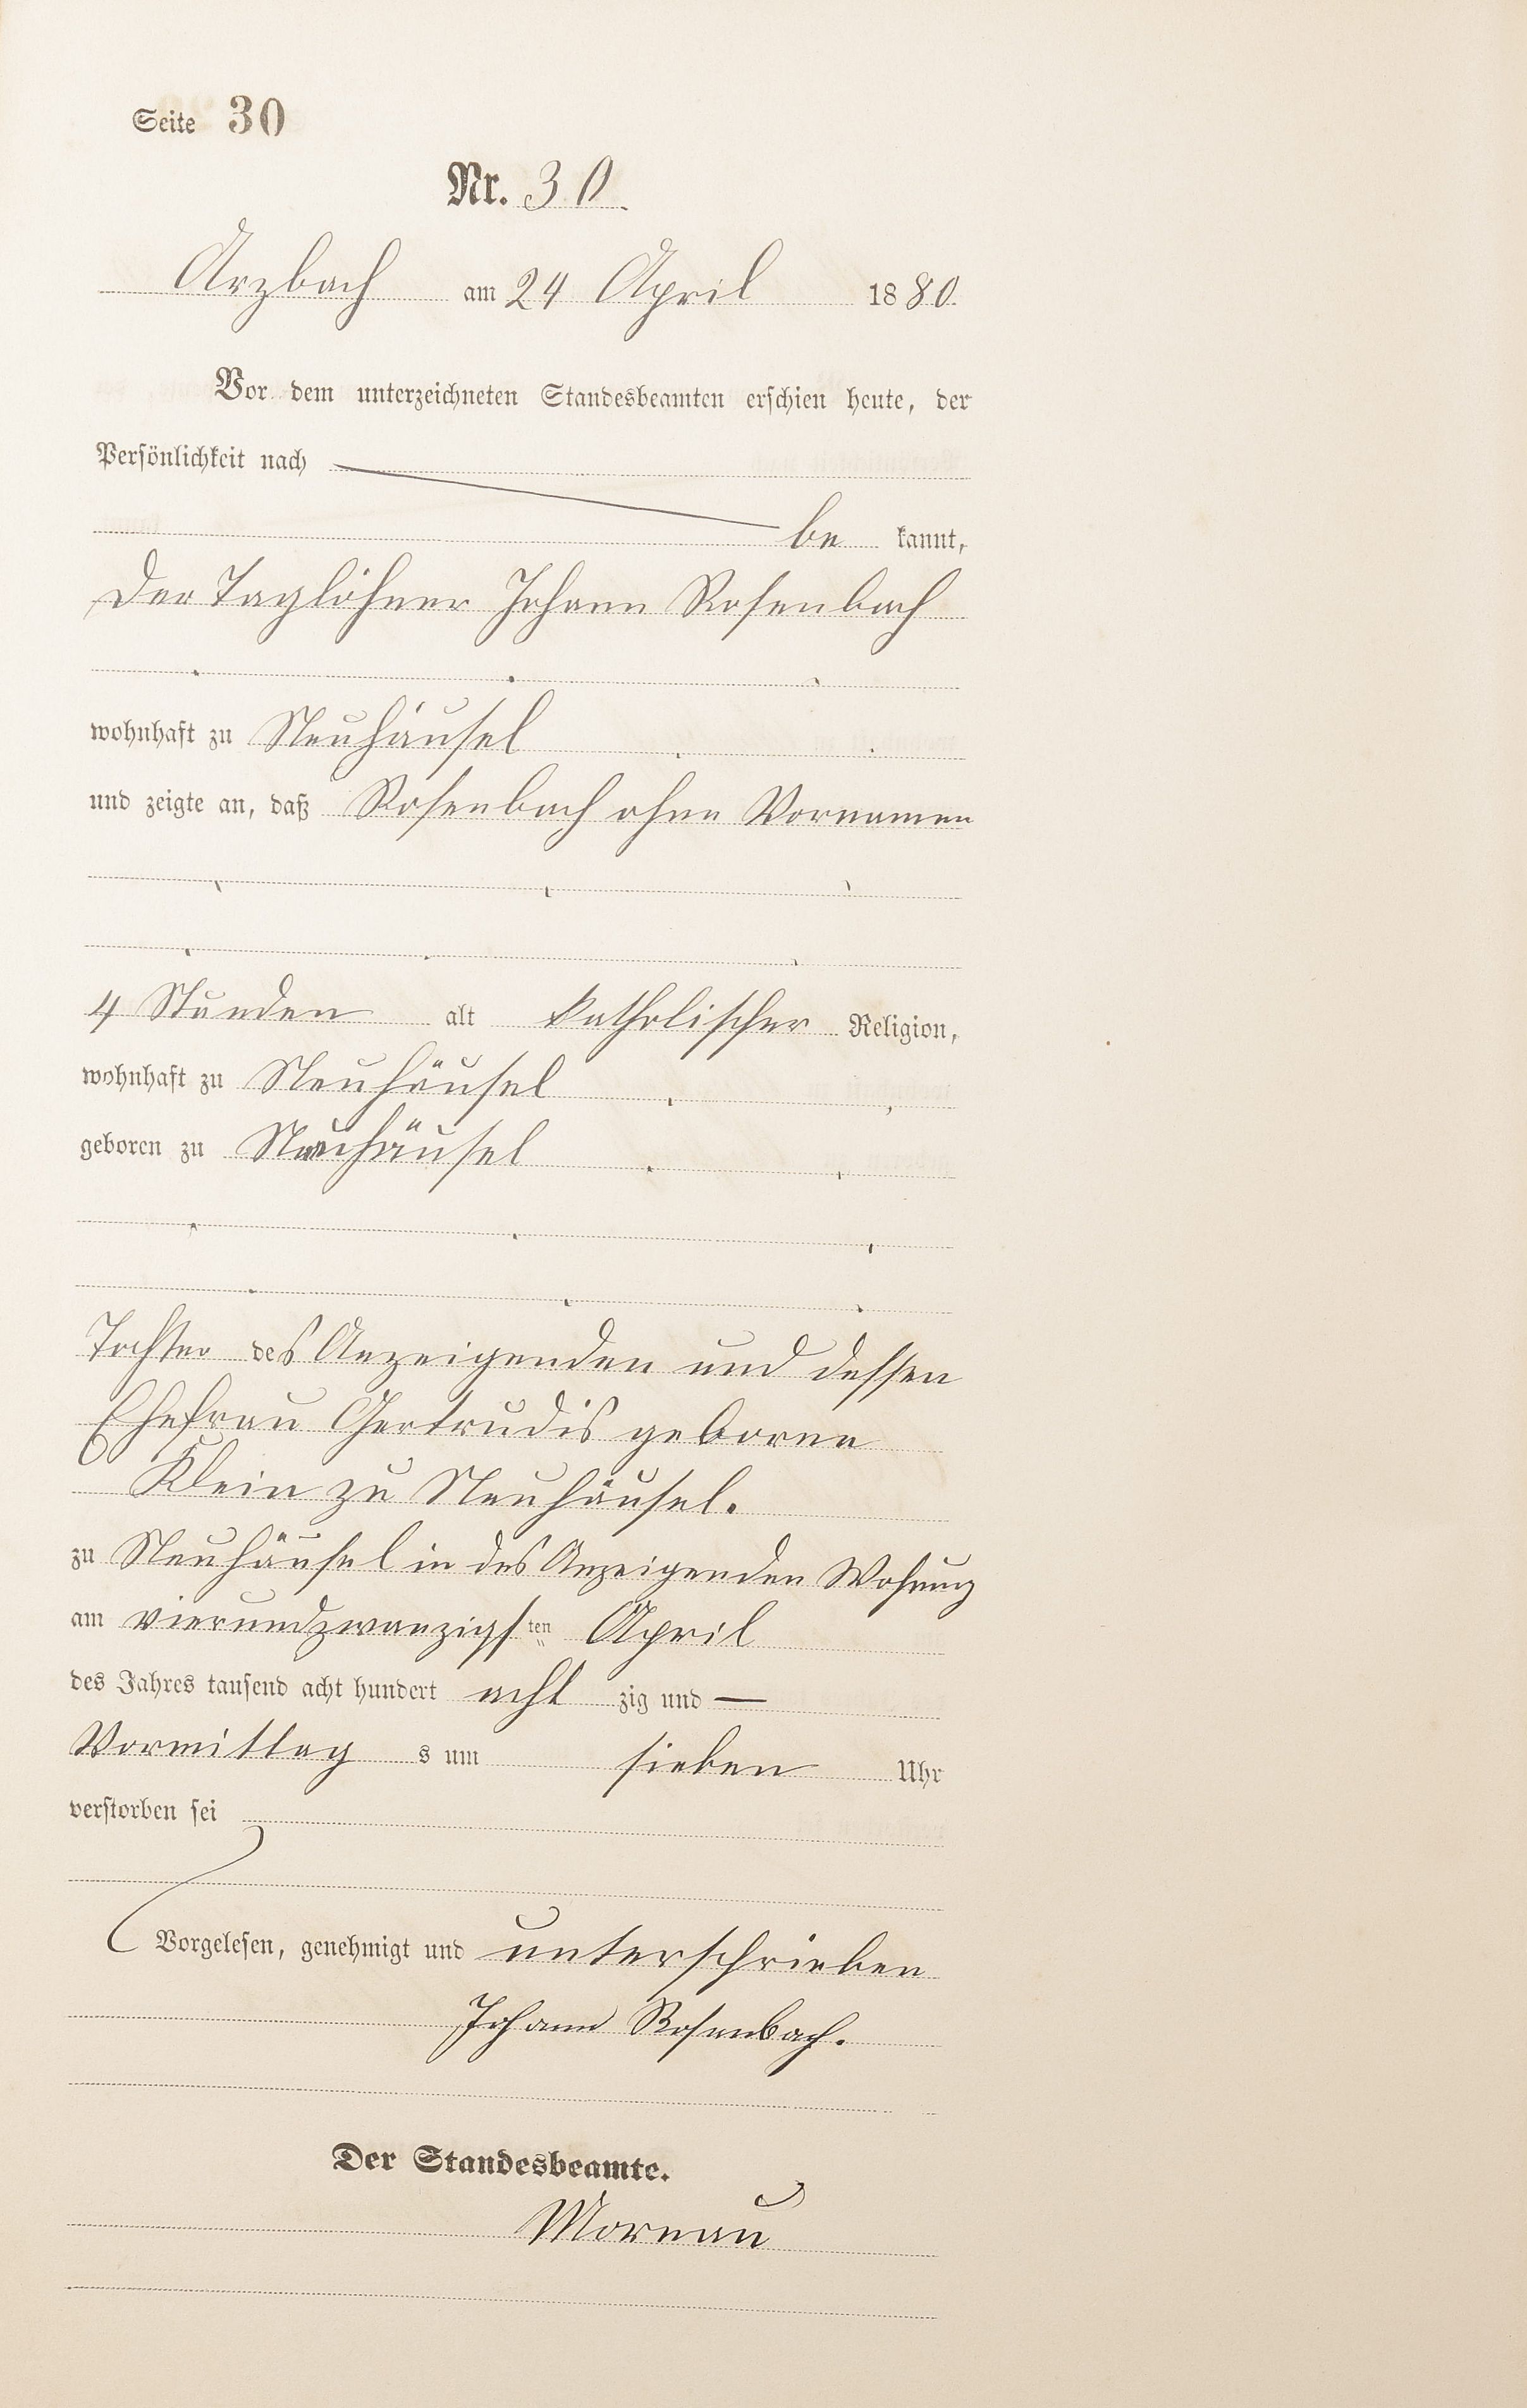 Seite 30
Nr. 30.
Arzbach am 24 April 1880.
Vor dem unterzeichneten Standesbeamten erschien heute, der
Persönlichkeit nach
be kannt,
der Taglöhner Johann Rosenbach
wohnhaft zu Neuhäusel
und zeigte an, daß Rosenbach ohne Vornamen
4 Stunden alt katholischer Religion,
wohnhaft zu Neuhäusel
geboren zu Neuhäusel
Tochter des Anzeigenden und dessen
Ehefrau Gertrudis geborene
Klein zu Neuhäusel.
zu Neuhäusel in des Anzeigenden Wohnung
am vierundzwanzigsten April
des Jahres tausend acht hundert acht zig und —
Vormittag s um sieben Uhr
verstorben sei
Vorgelesen, genehmigt und unterschrieben
Johann Rosenbach.
Der Standesbeamte.
Mornau